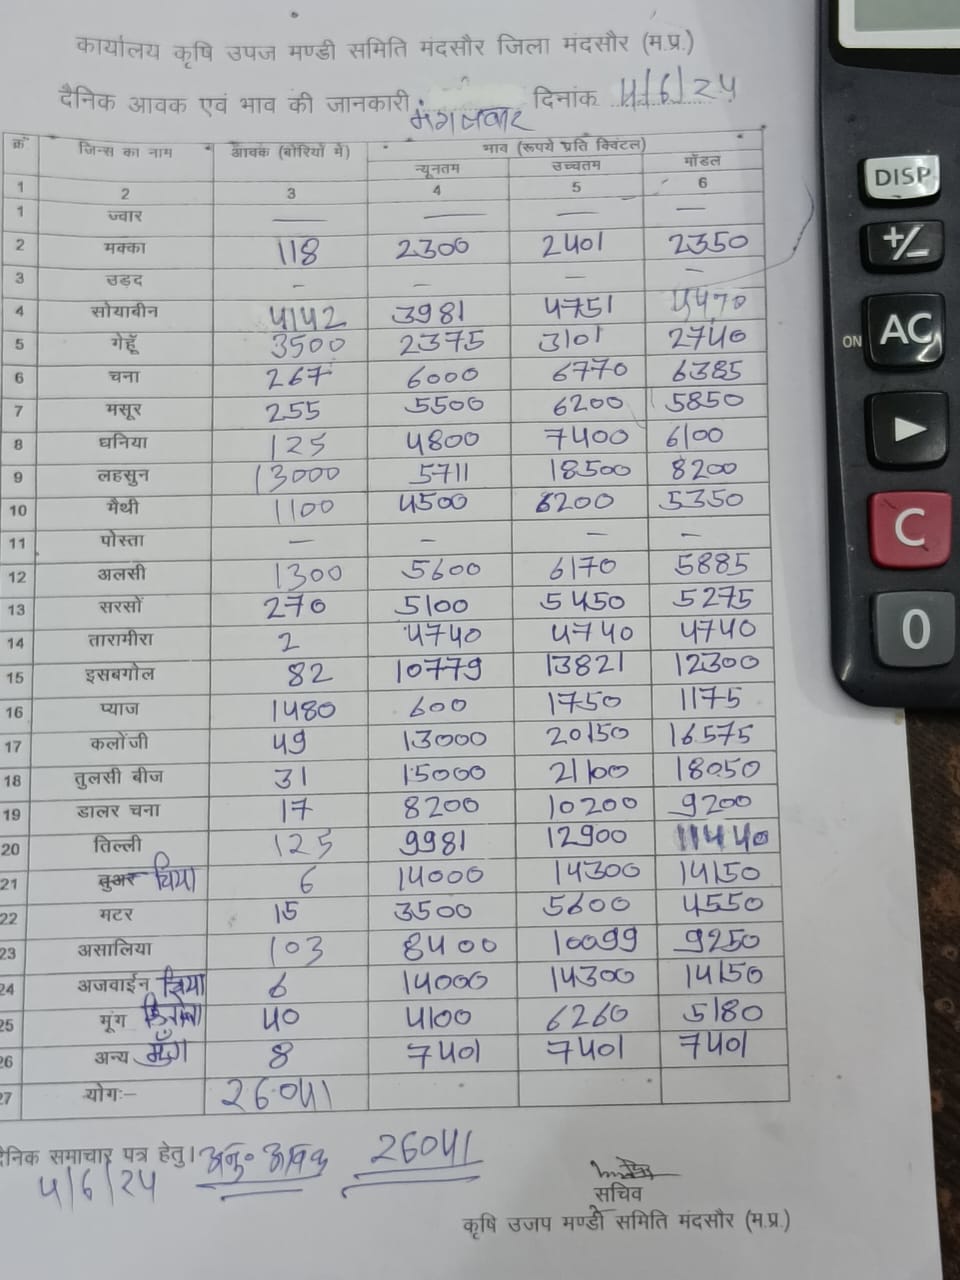 कार्यालय कृषि उपज मण्डी समिति मंदसौर जिला मंदसौर (म.प्र.)
दैनिक आवक एवं भाव की जानकारी मंगलवार दिनांक 4/6/24
क्र जिन्स का नाम आवक (बोरियों में) भाव (रूपये प्रति क्विंटल)
न्यूनतम उच्चतम मॉडल
1 2 3 4 5 6
1 ज्वार — — — —
2 मक्का 118 2300 2401 2350
3 उड़द - - - -
4 सोयाबीन 4142 3981 4751 4470
5 गेहूँ 3500 2375 3101 2740
6 चना 267 6000 6770 6385
7 मसूर 255 5500 6200 5850
8 धनिया 125 4800 7400 6100
9 लहसुन 13000 5711 18500 8200
10 मैथी 1100 4500 6200 5350
11 पोस्ता — - - -
12 अलसी 1300 5600 6170 5885
13 सरसों 270 5100 5450 5275
14 तारामीरा 2 4740 4740 4740
15 इसबगोल 82 10779 13821 12300
16 प्याज 1480 600 1750 1175
17 कलोंजी 49 13000 20150 16575
18 तुलसी बीज 31 15000 21100 18050
19 डालर चना 17 8200 10200 9200
20 तिल्ली 125 9981 12900 11440
21 तुअर चिया 6 14000 14300 14150
22 मटर 15 3500 5600 4550
23 असालिया 103 8400 10099 9250
24 अजवाईन चिया 6 14000 14300 14150
25 मूंग 40 4100 6260 5180
26 अन्य मूँग 8 7401 7401 7401
27 योगः- 26041
दैनिक समाचार पत्र हेतु। अनु॰ आवक 26041
4/6/24
सचिव
कृषि उजप मण्डी समिति मंदसौर (म.प्र.)
DISP
+/-
ON AC
▶
C
0